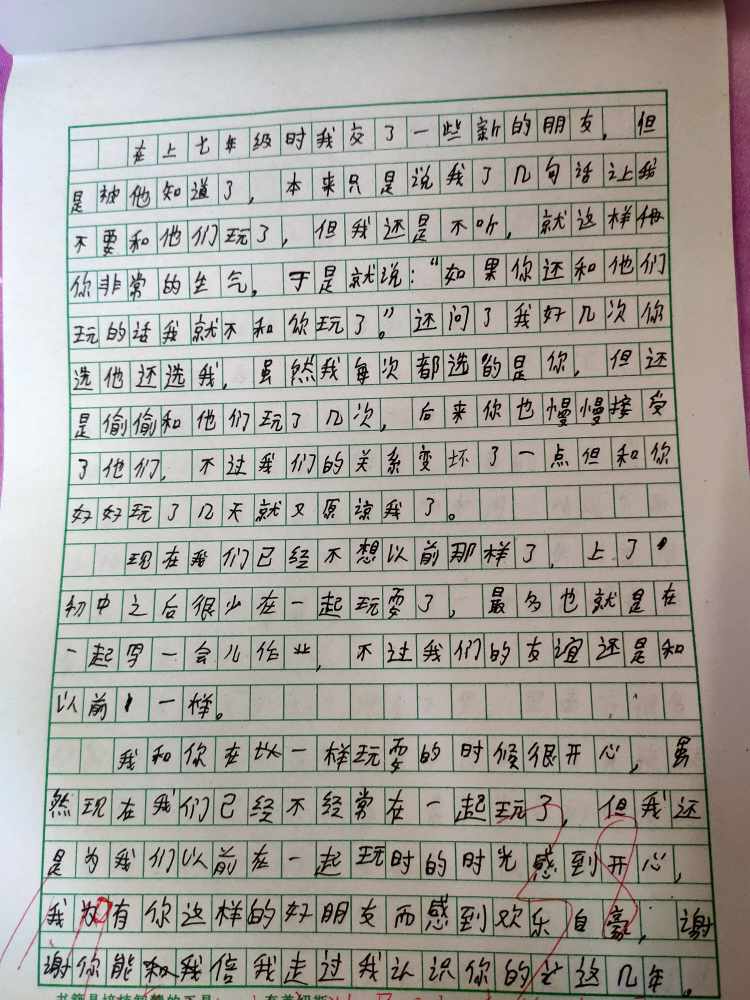 在上七年级时我交了一些新的朋友，但
是被他知道了，本来只是说我了几句话让我
不要和他们玩了，但我还是不听，就这样
你非常的生气，于是就说：“如果你还和他们
玩的话我就不和你玩了。”还问了我好几次你
选他还选我，虽然我每次都选的是你，但还
是偷偷和他们玩了几次，后来你也慢慢接受
了他们，不过我们的关系变坏了一点但和你
好好玩了几天就又原谅我了。
现在我们已经不想以前那样了，上了
初中之后很少在一起玩耍了，最多也就是在
一起写一会儿作业，不过我们的友谊还是和
以前一样。
我和你在以一样玩耍的时候很开心，虽
然现在我们已经不经常在一起玩了，但我还
是为我们以前在一起玩时的时光感到开心，
我有你这样的好朋友而感到欢乐自豪，谢
谢你能和我倍我走过我认识你的这几年，
38